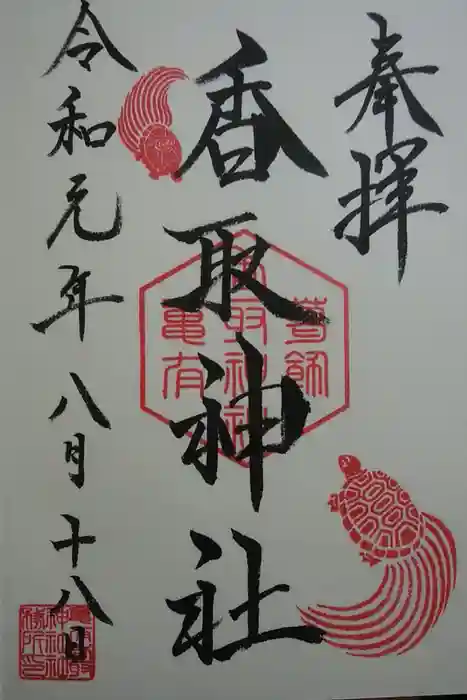 奉拝
香取神社
令和元年八月十八日
亀有
香取神社